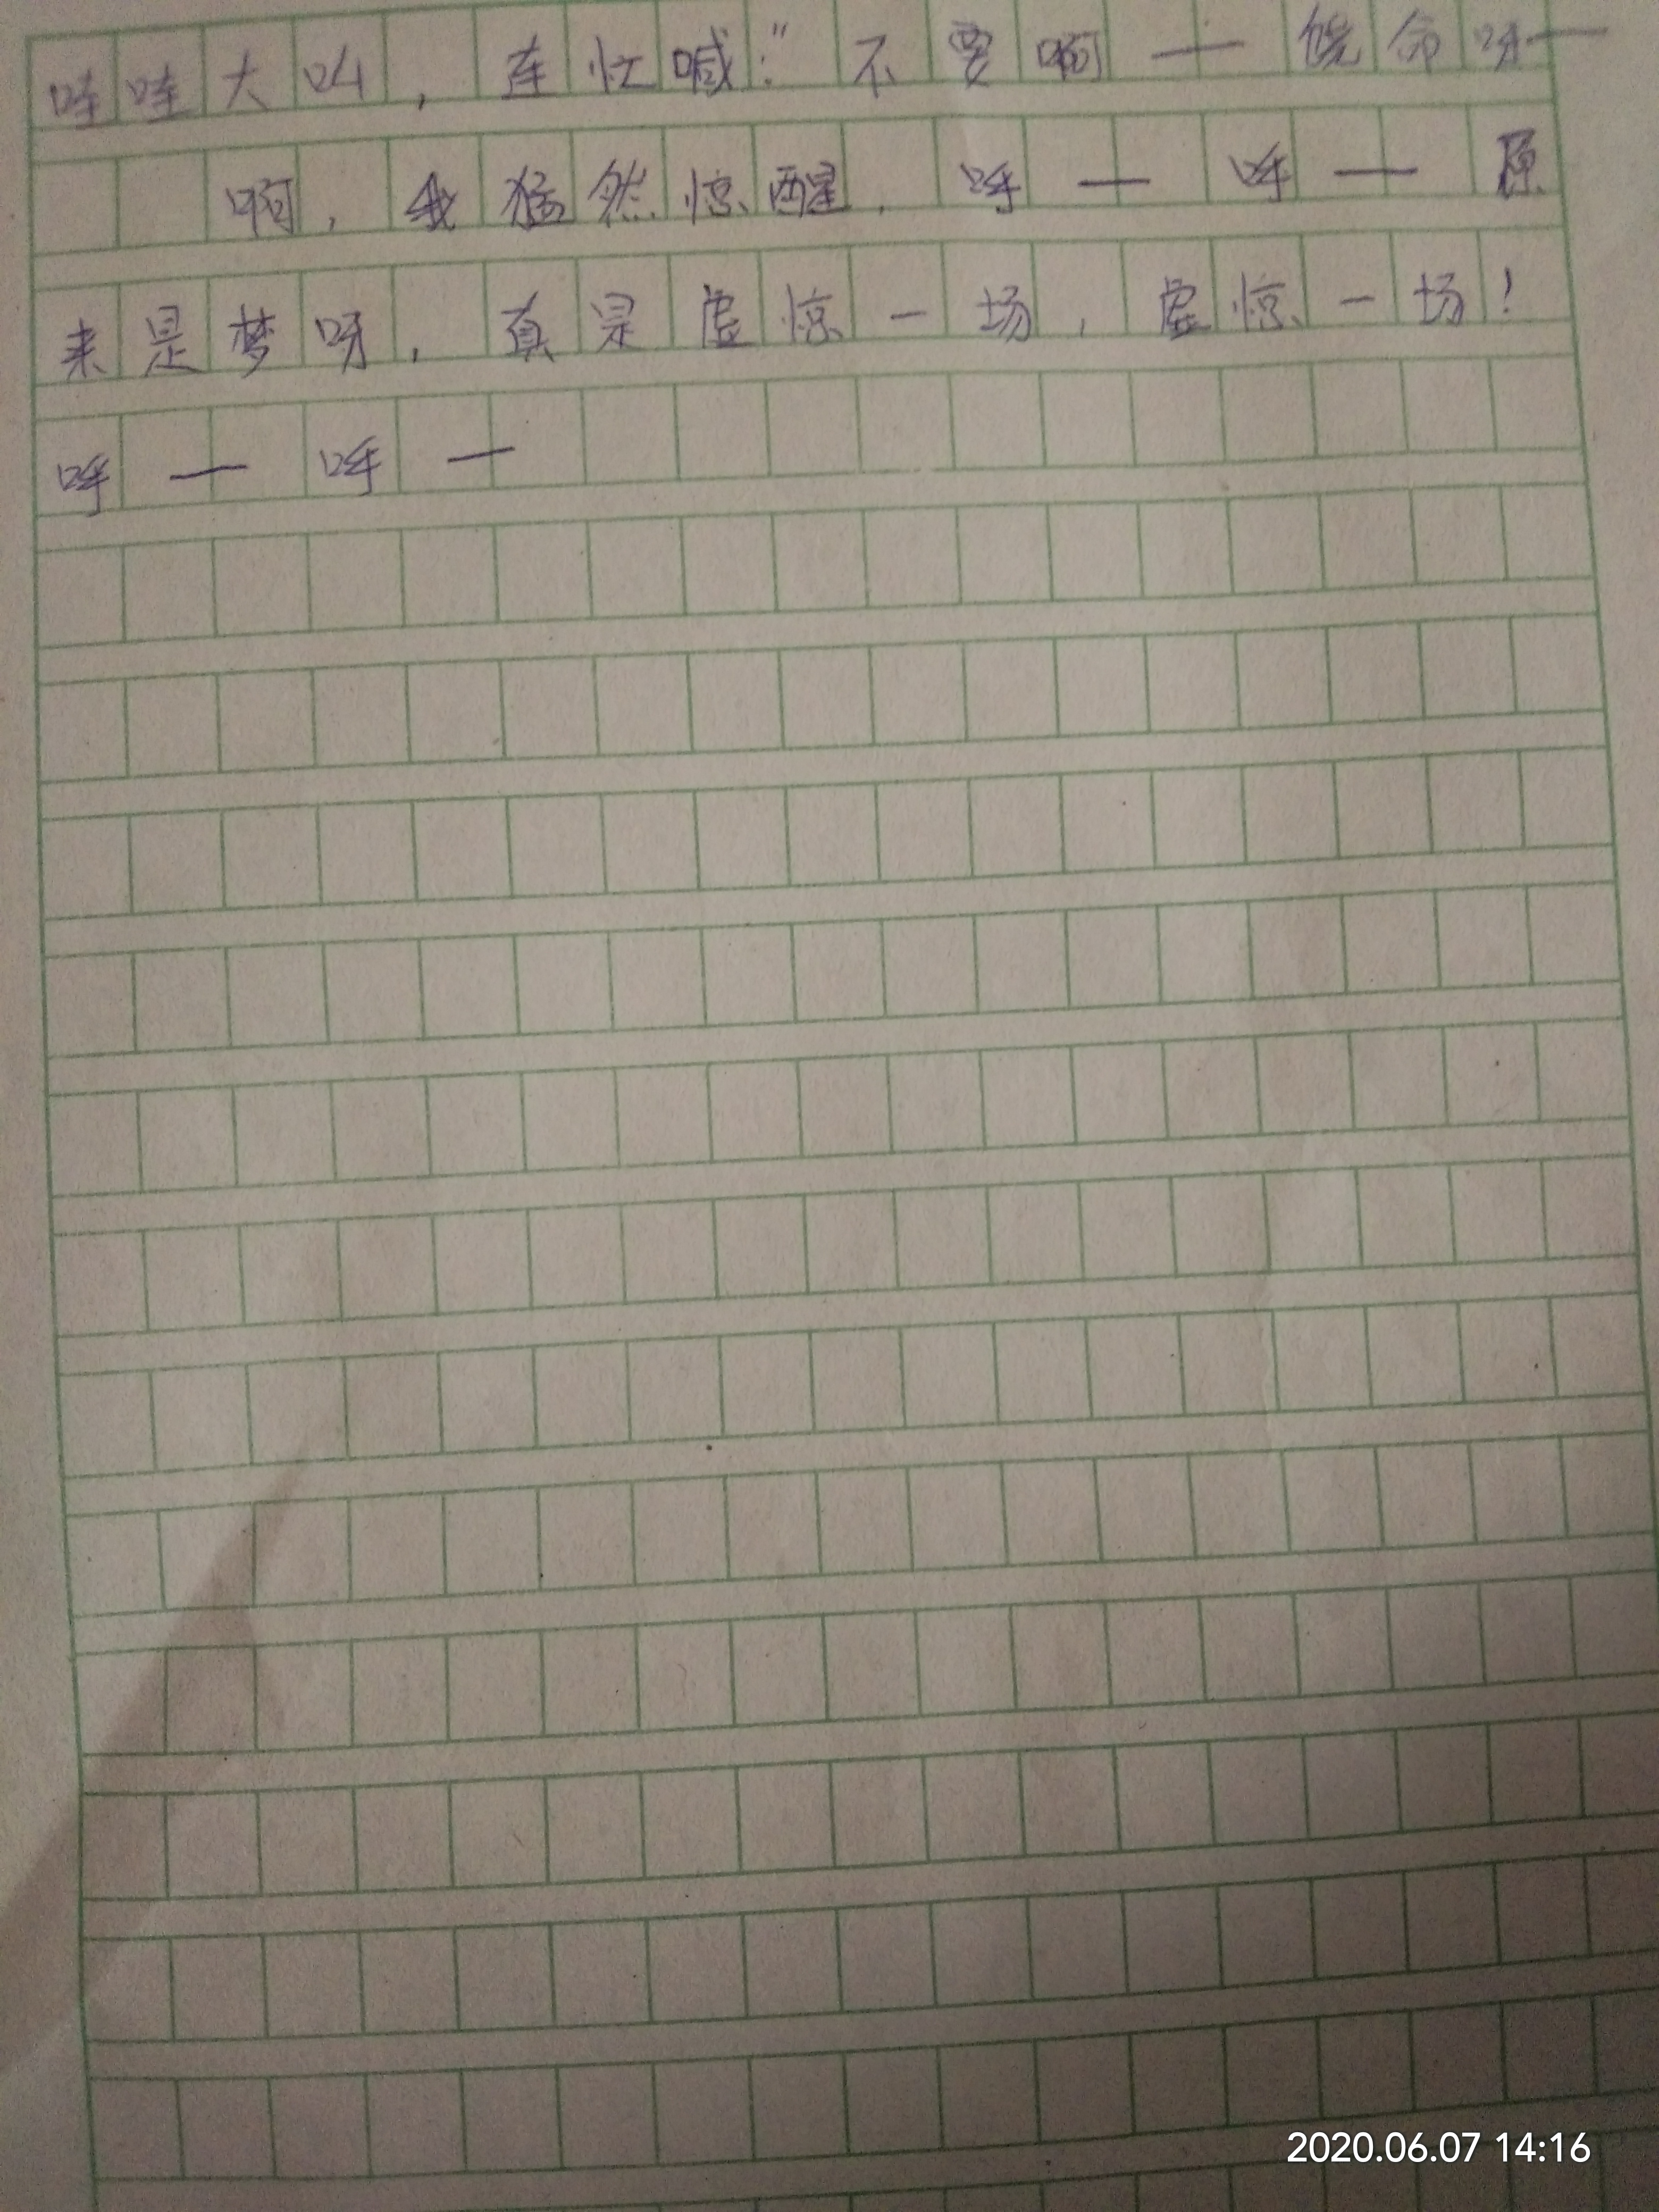 哇哇大叫，连忙喊："不要啊——饶命呀——
啊，我猛然惊醒，呼——呼——原
来是梦呀，真是虚惊一场，虚惊一场！
呼——呼——
2020.06.07 14:16